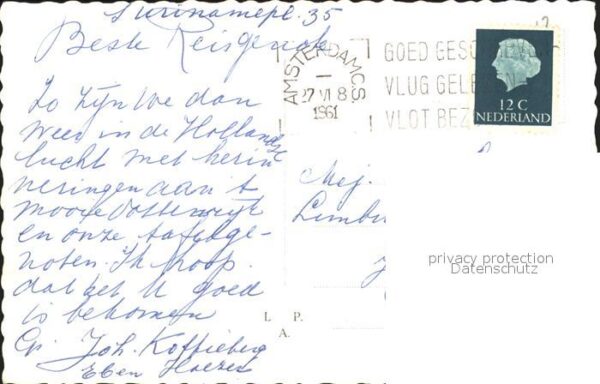 Surinamepl. 35
Beste Reisgenote
Zo zijn we dan
weer in de Hollandse
lucht met herin
neringen aan 't
mooie Oostenrijk
en onze tafelge-
noten. Ik hoop
dat het U goed
is bekomen
Gr. Joh. Koffieberg
AMSTERDAM C.S
27 VI 8
1961
GOED GESCHREVEN
VLUG GELEZEN
VLOT BEZ
12 C
NEDERLAND
Mej.
Limbu
privacy protection
Datenschutz
L P
A.